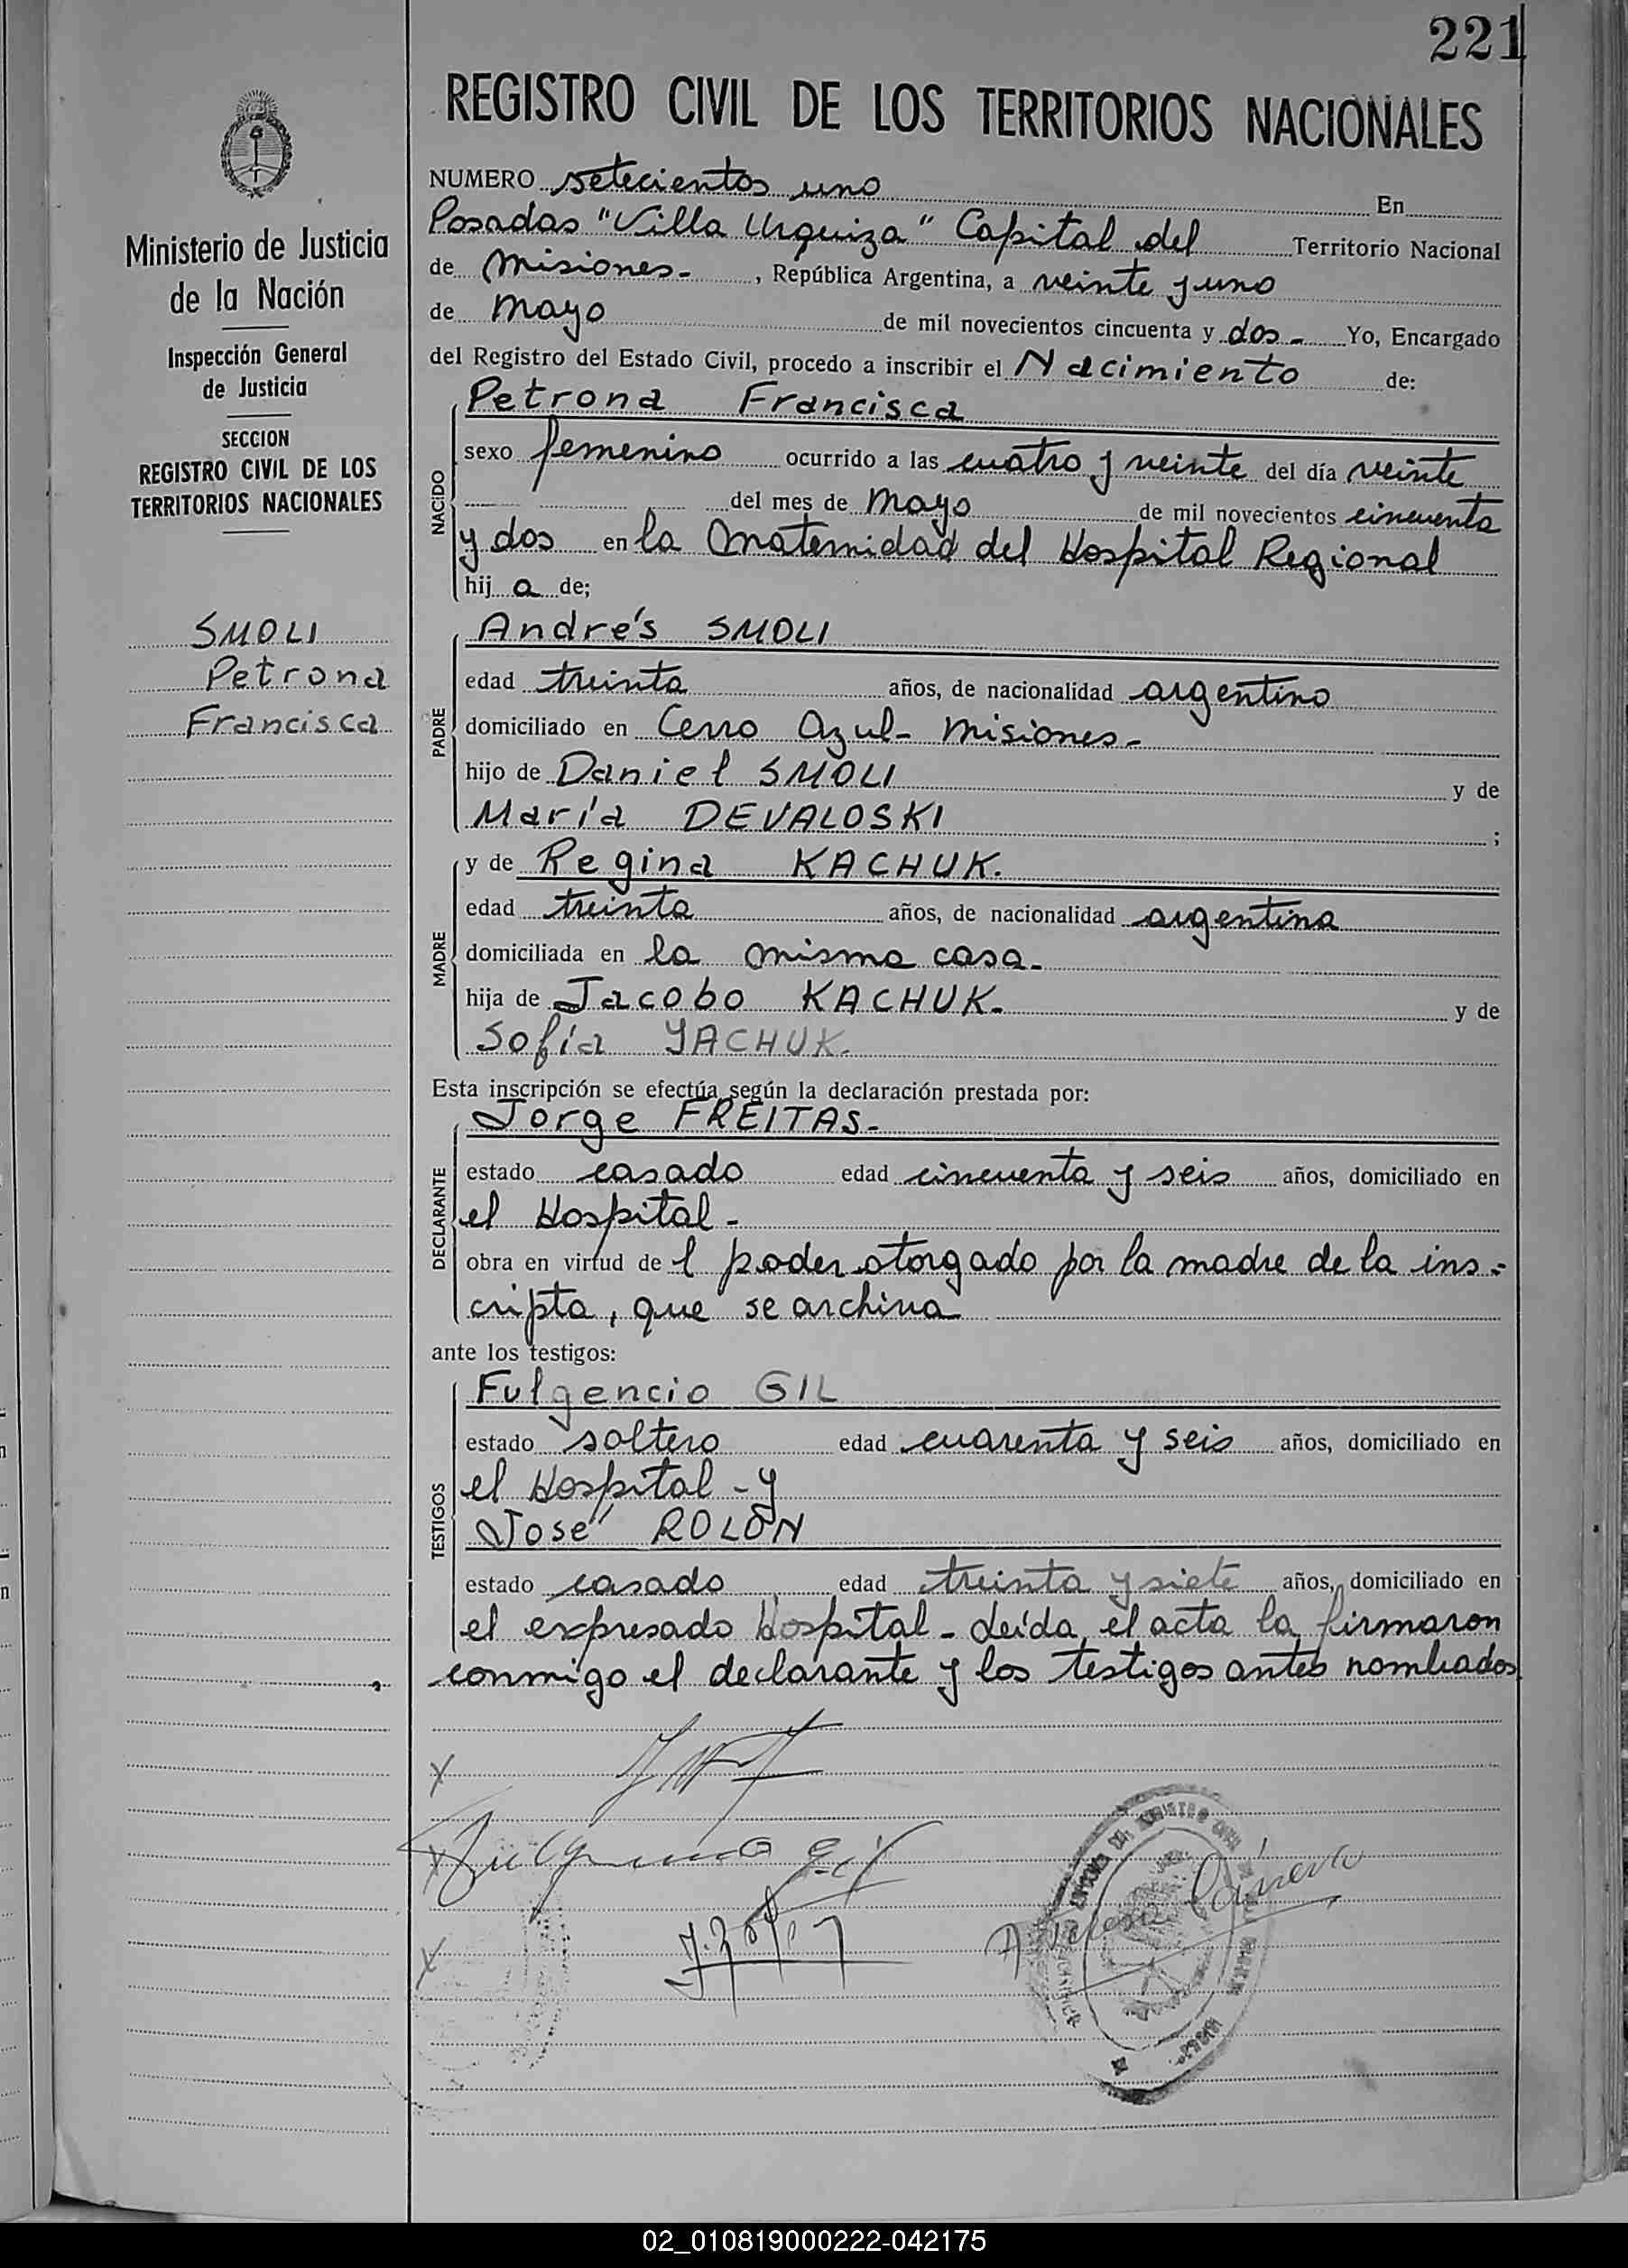 221
REGISTRO CIVIL DE LOS TERRITORIOS NACIONALES
Ministerio de Justicia
de la Nación
Inspección General
de Justicia
SECCION
REGISTRO CIVIL DE LOS
TERRITORIOS NACIONALES
SMOLI
Petrona
Francisca
NUMERO setecientos uno En
Posadas "Villa Urquiza" Capital del Territorio Nacional
de Misiones- , República Argentina, a veinte y uno
de Mayo de mil novecientos cincuenta y dos - Yo, Encargado
del Registro del Estado Civil, procedo a inscribir el Nacimiento de:
NACIDO
Petrona Francisca
sexo femenino ocurrido a las cuatro y veinte del día veinte
del mes de Mayo de mil novecientos cincuenta
y dos en la Maternidad del Hospital Regional
hij a de;
PADRE
Andrés SMOLI
edad treinta años, de nacionalidad argentino
domiciliado en Cerro Azul- Misiones-
hijo de Daniel SMOLI y de
María DEVALOSKI ;
MADRE
y de Regina KACHUK.
edad treinta años, de nacionalidad argentina
domiciliada en la misma casa-
hija de Jacobo KACHUK- y de
Sofía YACHUK.
Esta inscripción se efectúa según la declaración prestada por:
DECLARANTE
Jorge FREITAS-
estado casado edad cincuenta y seis años, domiciliado en
el Hospital-
obra en virtud de l poder otorgado por la madre de la ins-
cripta, que se archiva
ante los testigos:
TESTIGOS
Fulgencio GIL
estado soltero edad cuarenta y seis años, domiciliado en
el Hospital - y
José ROLÓN
estado casado edad treinta y siete años, domiciliado en
el expresado Hospital - Leída el acta la firmaron
conmigo el declarante y los testigos antes nombrados
X
X Fulgencio Gil
X
02_010819000222-042175